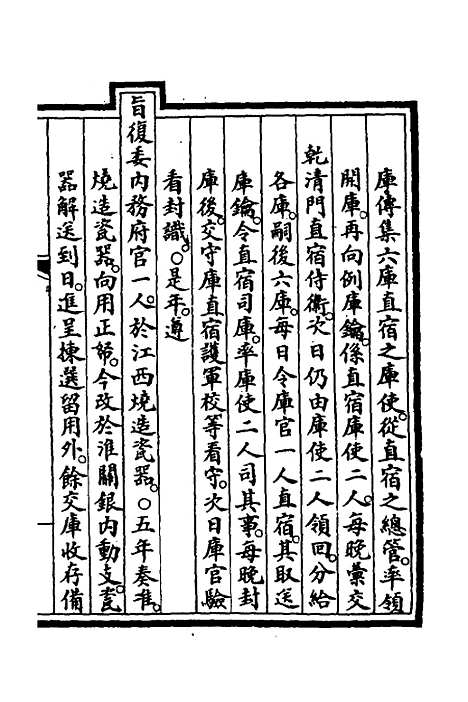 庫傳集六庫直宿之庫使。從直宿之總管。率領
開庫。再向例庫鑰。係直宿庫使二人。每晚彙交
乾清門直宿侍衞。次日仍由庫使二人領回。分給
各庫。嗣後六庫。每日令庫官一人直宿。其取送
庫鑰。令直宿司庫。率庫使二人司其事。每晚封
庫後。交守庫直宿護軍校等看守。次日庫官驗
看封識。○是年。遵
旨復委內務府官一人。於江西燒造瓷器。○五年奏准。
燒造瓷器。向用正帑。今改於淮關銀內動支。瓷
器解送到日。進呈揀選留用外。餘交庫收存備